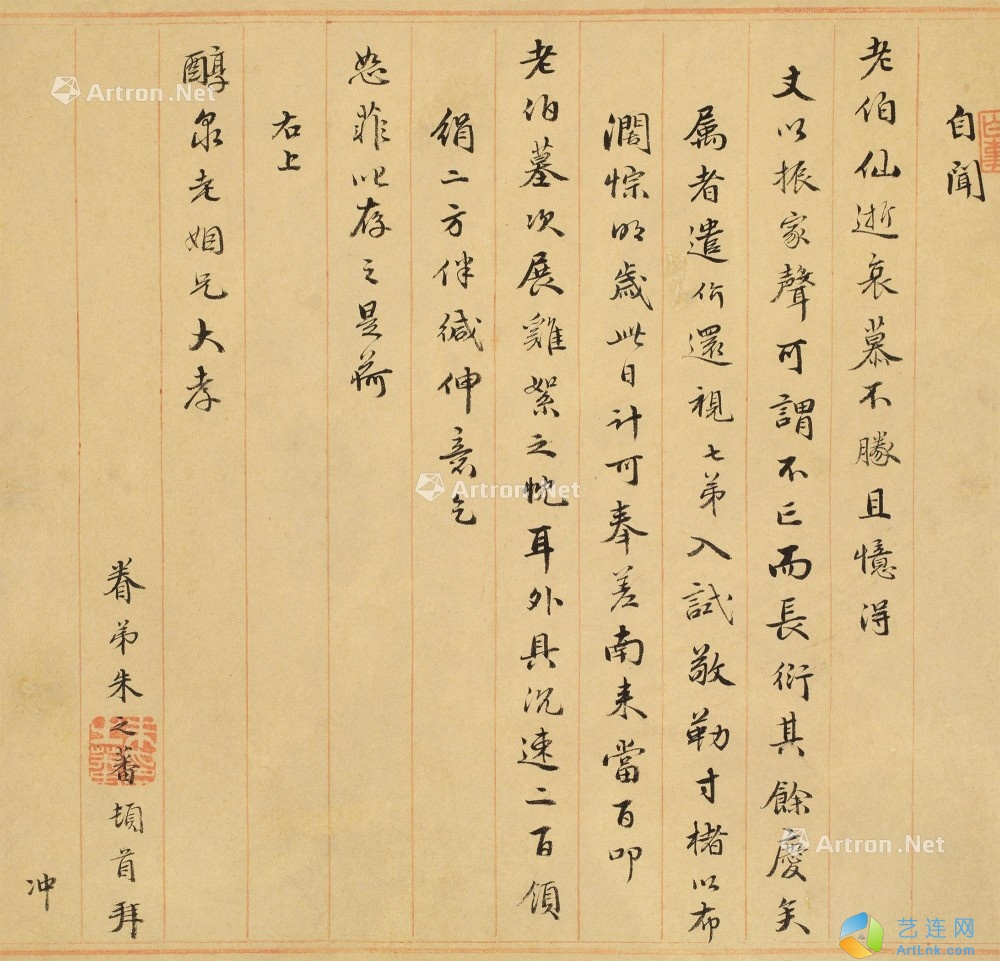 自聞
老伯仙逝哀慕不勝且憶得
丈以振家聲可謂不亡而長衍其餘慶矣
属者遣伻還視七弟入試敬勒寸楮以布
濶悰明歲此日計可奉差南来當百叩
老伯墓次展雞絮之忱耳外具沉速二百領
絹二方伴緘伸意乞
恕菲此存之是荷
右上
醇泉老姻兄大孝
眷弟朱之蕃頓首拜
冲
Artron.Net
Artron.Net
Artron.Net
艺连网
ArtLnk.com